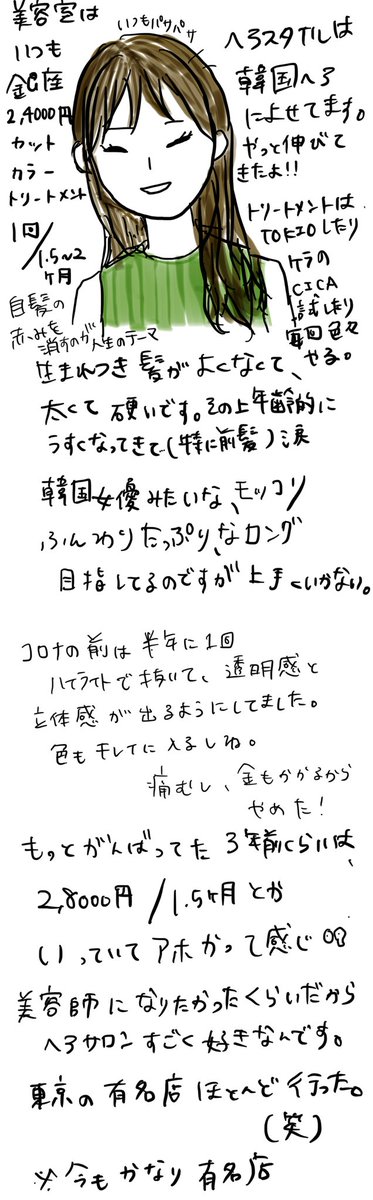 美容室は
いつも
銀座
2,4000円
カット
カラー
トリートメント
1回/1.5〜2ヶ月
いつもパサパサ
ヘアスタイルは
韓国ヘア
によせてます。
やっと伸びて
きたよ!!
トリートメントは
TOKIOしたり
ケラの
CICA
試したり
毎回色々
やる。
自髪の
赤みを
消すのが人生のテーマ
生まれつき髪がよくなくて、
太くて硬いです。その上年齢的に
うすくなってきて(特に前髪)涙
韓国女優みたいな、モッコリ
ふんわりたっぷり、なロング
目指してるのですが上手くいかない。
コロナの前は半年に1回
ハイライトで抜いて、透明感と
立体感が出るようにしてました。
色もキレイに入るしね。
痛むし、金もかかるから
やめた!
もっとがんばってた3年前くらいは、
2,8000円/1.5ヶ月とか
いっていてアホかって感じ
美容師になりたかったくらいだから
ヘアサロンすごく好きなんです。
東京の有名店ほとんど行った。
(笑)
※今もかなり有名店